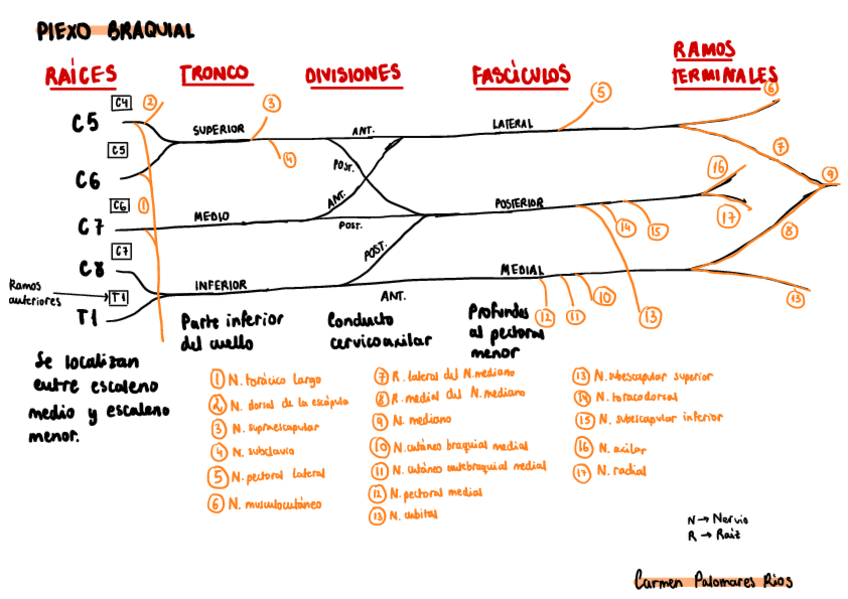 PIEXO BRAQUIAL
RAÍCES
TRONCO
DIVISIONES
FASCÍCULOS
RAMOS
TERMINALES
C4
C5
C5
C6
C6
C7
C7
C8
T1
T1
Ramos
anteriores
SUPERIOR
MEDIO
INFERIOR
ANT.
POST.
ANT.
POST.
POST.
ANT.
LATERAL
POSTERIOR
MEDIAL
1
2
3
4
5
6
7
8
9
16
17
14
15
13
12
11
10
13
Se localizan
entre escaleno
medio y escaleno
menor.
Parte inferior
del cuello
Conducto
cervicoaxilar
Profundos
al pectoral
menor
1 N. torácico largo
2 N. dorsal de la escápula
3 N. supraescapular
4 N. subclavio
5 N. pectoral lateral
6 N. musculocutáneo
7 R. lateral del N. mediano
8 R. medial del N. mediano
9 N. mediano
10 N. cutáneo braquial medial
11 N. cutáneo antebraquial medial
12 N. pectoral medial
13 N. cubital
13 N. subescapular superior
14 N. toracodorsal
15 N. subescapular inferior
16 N. axilar
17 N. radial
N → Nervio
R → Raiz
Carmen Palomares Rios